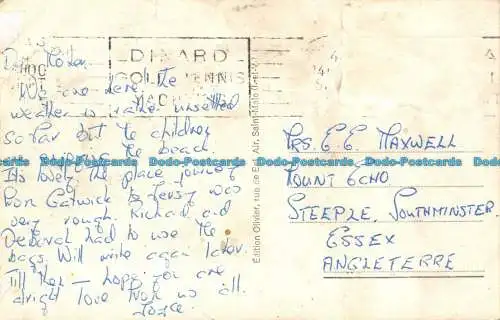 Dear
We are here. The
weather is rather unsettled
so far but the children
the beach.
Its lovely. The plane journey
from Gatwick to Jersey was
very rough. Richard and
Deborah had to use the
bags. Will write again later.
Till then — hope you are
alright love from us all.
Joyce.
DINARD
GOLF TENNIS
Edition Olivier, rue de
Air, Saint-Malo
MRS. E. E. MAXWELL
MOUNT ECHO
STEEPLE, SOUTHMINSTER
ESSEX
ANGLETERRE
Dodo-Postcards Dodo-Postcards Dodo-Postcards Dodo-Postcards